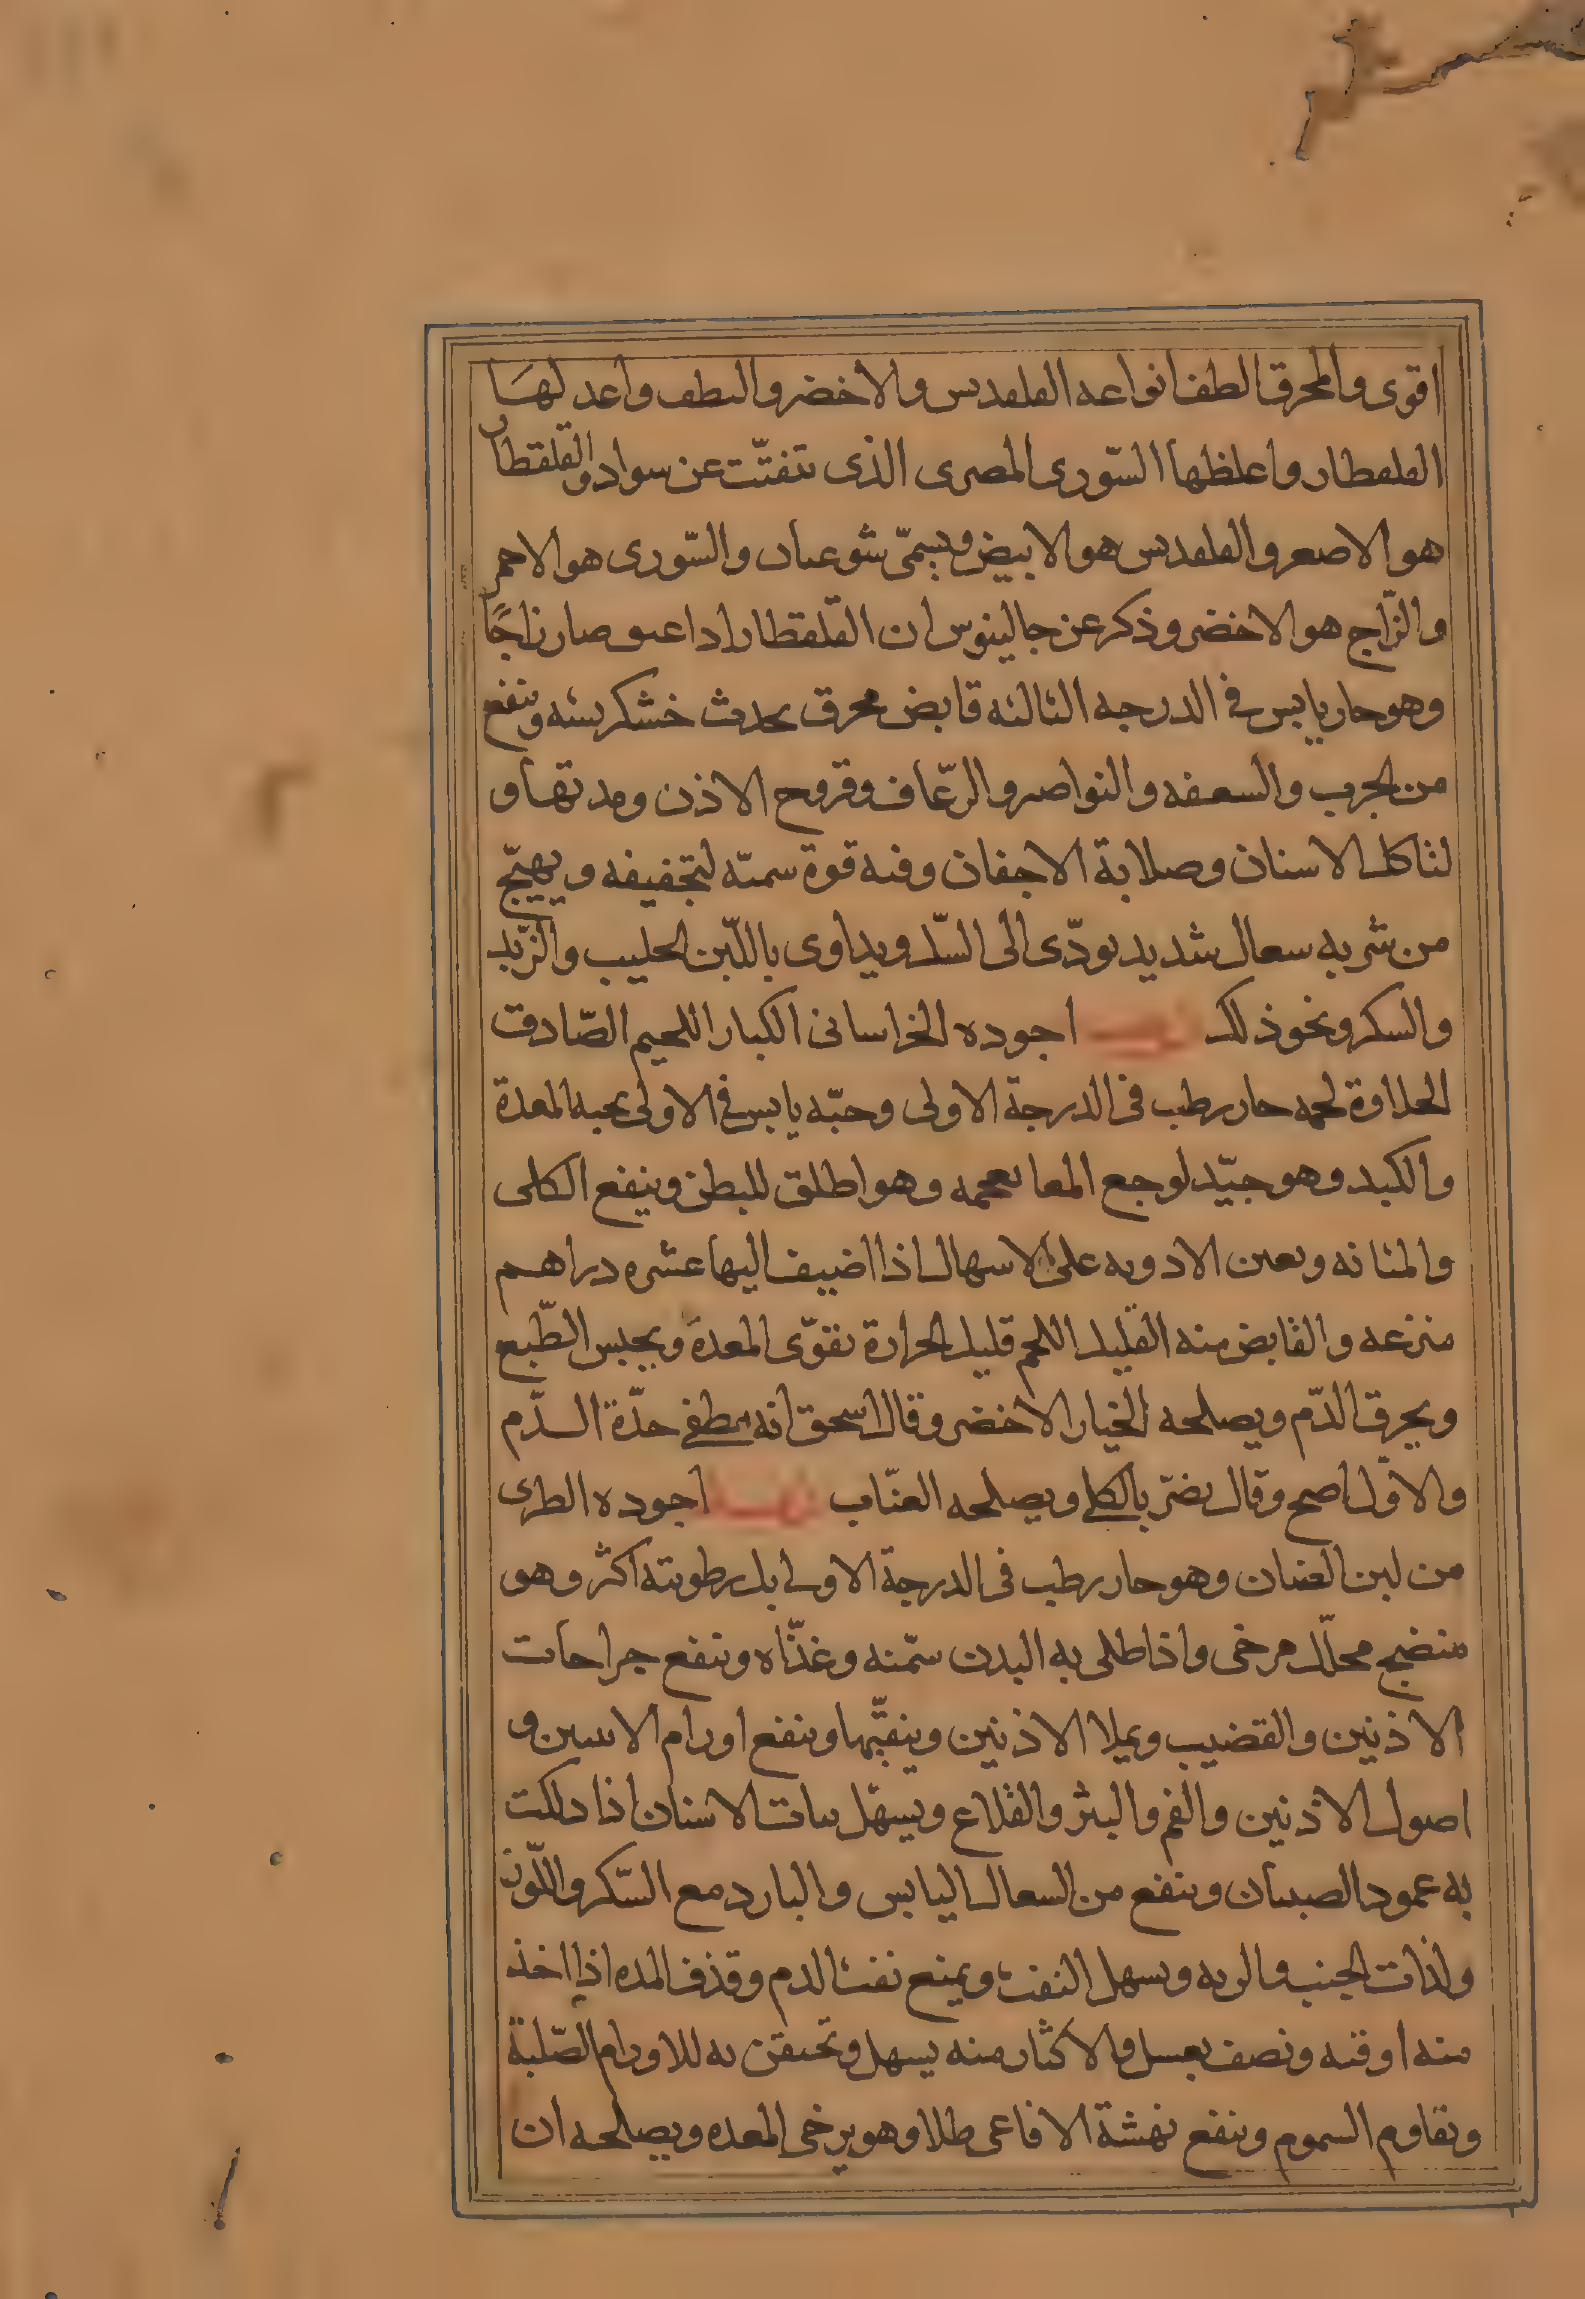 اقوى والمحرق الطف انواعه القلقديس والاخضر والطف واعدلها
القلقطار واغلظها السّورى المصرى الذى يتفتّت عن سواد والقلقطار
هو الاصفر والقلقديس هو الابيض ويسمّى والسّورى هو الاحمر
والزّاج هو الاخضر وذكر عن جالينوس ان القلقطار اذا عتق صار زاجًا
وهو حار يابس فى الدرجه الثالثه قابض محرق يحدث خشكريشه وينفع
من الجرب والسعفه والنواصر والرّعاف وقروح الاذن ومدتها و
لتاكل الاسنان وصلابة الاجفان وفيه قوة سميّه لتجفيفه ويهيّج
من شربه سعال شديد يودّى الى السّل ويداوى باللّبن الحليب والزّبد
والسكر ونحو ذلك زبيب اجوده الخراسانى الكبار اللحيم الصّادق
الحلاوة لحمه حار رطب فى الدرجة الاولى وحبّه يابس فى الاولى يحبه المعدة
والكبد وهو جيّد لوجع المعا بعجمه وهو اطلق للبطن وينفع الكلى
والمثانه ويعين الادويه على الاسهال اذا اضيف اليها عشره دراهم
منزعه والقابض منه القليل اللحم قليل الحرارة يقوّى المعدة ويحبس الطّبع
ويحرق الدّم ويصلحه الخيار الاخضر وقال اسحق انه يطفى حدّة الدّم
والاوّل اصح وقال يضرّ بالكلى ويصلحه العنّاب زبد اجوده الطرى
من لبن الضان وهو حار رطب فى الدرجة الاولى بل رطوبته اكثر وهو
منضج محلّل مرخى واذا طلى به البدن سمّنه وغذّاه وينفع جراحات
الاذنين والقضيب ويملا الاذنين وينقّيها وينفع اورام الانثيين و
اصول الاذنين والفم والبثر والقلاع ويسهّل نبات الاسنان اذا دلكت
به عمود الصبيان وينفع من السعال اليابس والبارد مع السّكر واللّوز
ولذات الجنب والريه ويسهل النفث ويمنع نفث الدم وقذف المده اذا اخذ
منه اوقيه ونصف بعسل والاكثار منه يسهل ويحتقن به للاورام الصّلبة
ويقاوم السموم وينفع نهشة الافاعى طلا وهو يرخى المعده ويصلحه ان